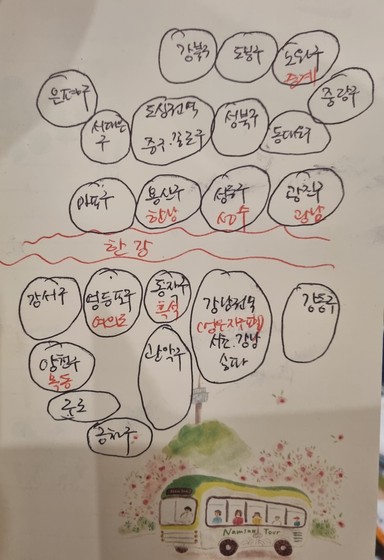 강북구
도봉구
노원구
중계
은평구
중랑구
서대문
구
도심권역
중구.종로구
성북구
동대문구
마포구
용산구
한남
성동구
성수
광진구
광남
한강
강서구
영등포구
여의도
동작구
흑석
강남권역
서초.강남
송파
강동구
양천구
목동
관악구
구로
금천구